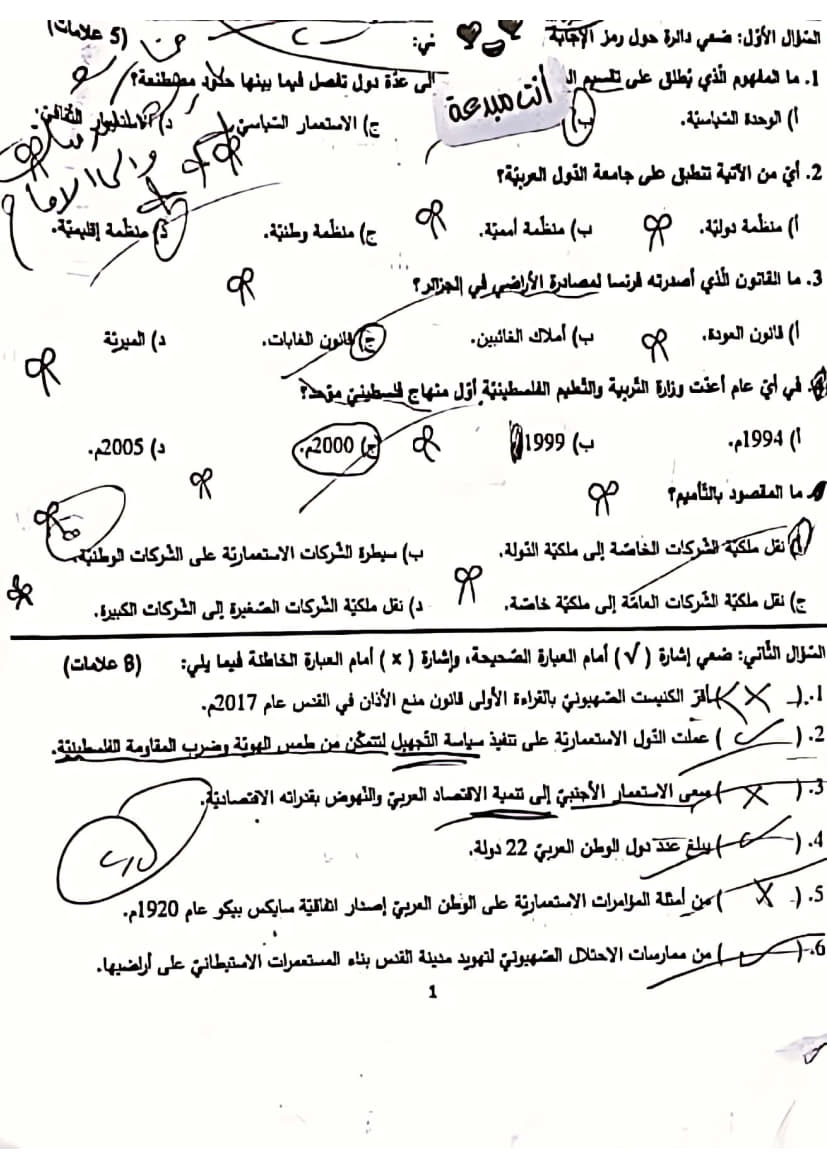 السؤال الأول: ضعي دائرة حول رمز الإجابة ني: (5 علامات)
1. ما المفهوم الذي يُطلق على تقسيم إلى عدّة دول تفصل فيما بينها حدود مصطنعة؟
أنت مبدعة
أ) الوحدة السّياسيّة. ب) ج) الاستعمار السّياسيّ د) الاستعمار الثّقافيّ.
والى الأمام
2. أيّ من الآتية تنطبق على جامعة الدّول العربيّة؟
أ) منظّمة دوليّة. ب) منظّمة أمميّة. ج) منظّمة وطنيّة. د) منظّمة إقليميّة.
3. ما القانون الّذي أصدرته فرنسا لمصادرة الأراضي في الجزائر؟
أ) قانون العودة. ب) أملاك الغائبين. ج) قانون الغابات. د) الميريّة
4. في أيّ عام أعدّت وزارة التّربية والتّعليم الفلسطينيّة أوّل منهاج فلسطينيّ موّحد؟
أ) 1994م. ب) 1999 ج) 2000م. د) 2005م.
ما المقصود بالتّأميم؟
أ) نقل ملكيّة الشّركات الخاصّة إلى ملكيّة الدّولة. ب) سيطرة الشّركات الاستعماريّة على الشّركات الوطنيّة.
ج) نقل ملكيّة الشّركات العامّة إلى ملكيّة خاصّة. د) نقل ملكيّة الشّركات الصّغيرة إلى الشّركات الكبيرة.
السّؤال الثّاني: ضعي إشارة (√) أمام العبارة الصّحيحة، وإشارة (×) أمام العبارة الخاطئة فيما يلي: (8 علامات)
1. (×) أقرّ الكنيست الصّهيونيّ بالقراءة الأولى قانون منع الأذان في القدس عام 2017م.
2. (✓) عملت الدّول الاستعماريّة على تنفيذ سياسة التّجهيل لتتمكّن من طمس الهويّة وضرب المقاومة الفلسطينيّة.
3. (×) سعى الاستعمار الأجنبيّ إلى تنمية الاقتصاد العربيّ والنّهوض بقدراته الاقتصاديّة.
4. (✓) يبلغ عدد دول الوطن العربيّ 22 دولة.
5. (×) من أمثلة المؤامرات الاستعماريّة على الوطن العربيّ إصدار اتفاقيّة سايكس بيكو عام 1920م.
6. (✓) من ممارسات الاحتلال الصّهيونيّ لتهويد مدينة القدس بناء المستعمرات الاستيطانيّ على أراضيها.
1